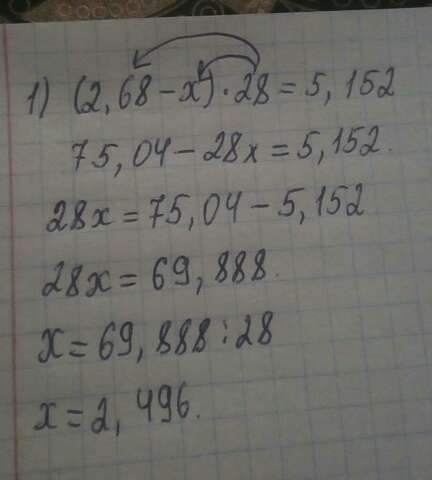 1) (2,68 - x) · 28 = 5,152
75,04 - 28x = 5,152.
28x = 75,04 - 5,152
28x = 69,888.
x = 69,888 : 28
x = 2,496.